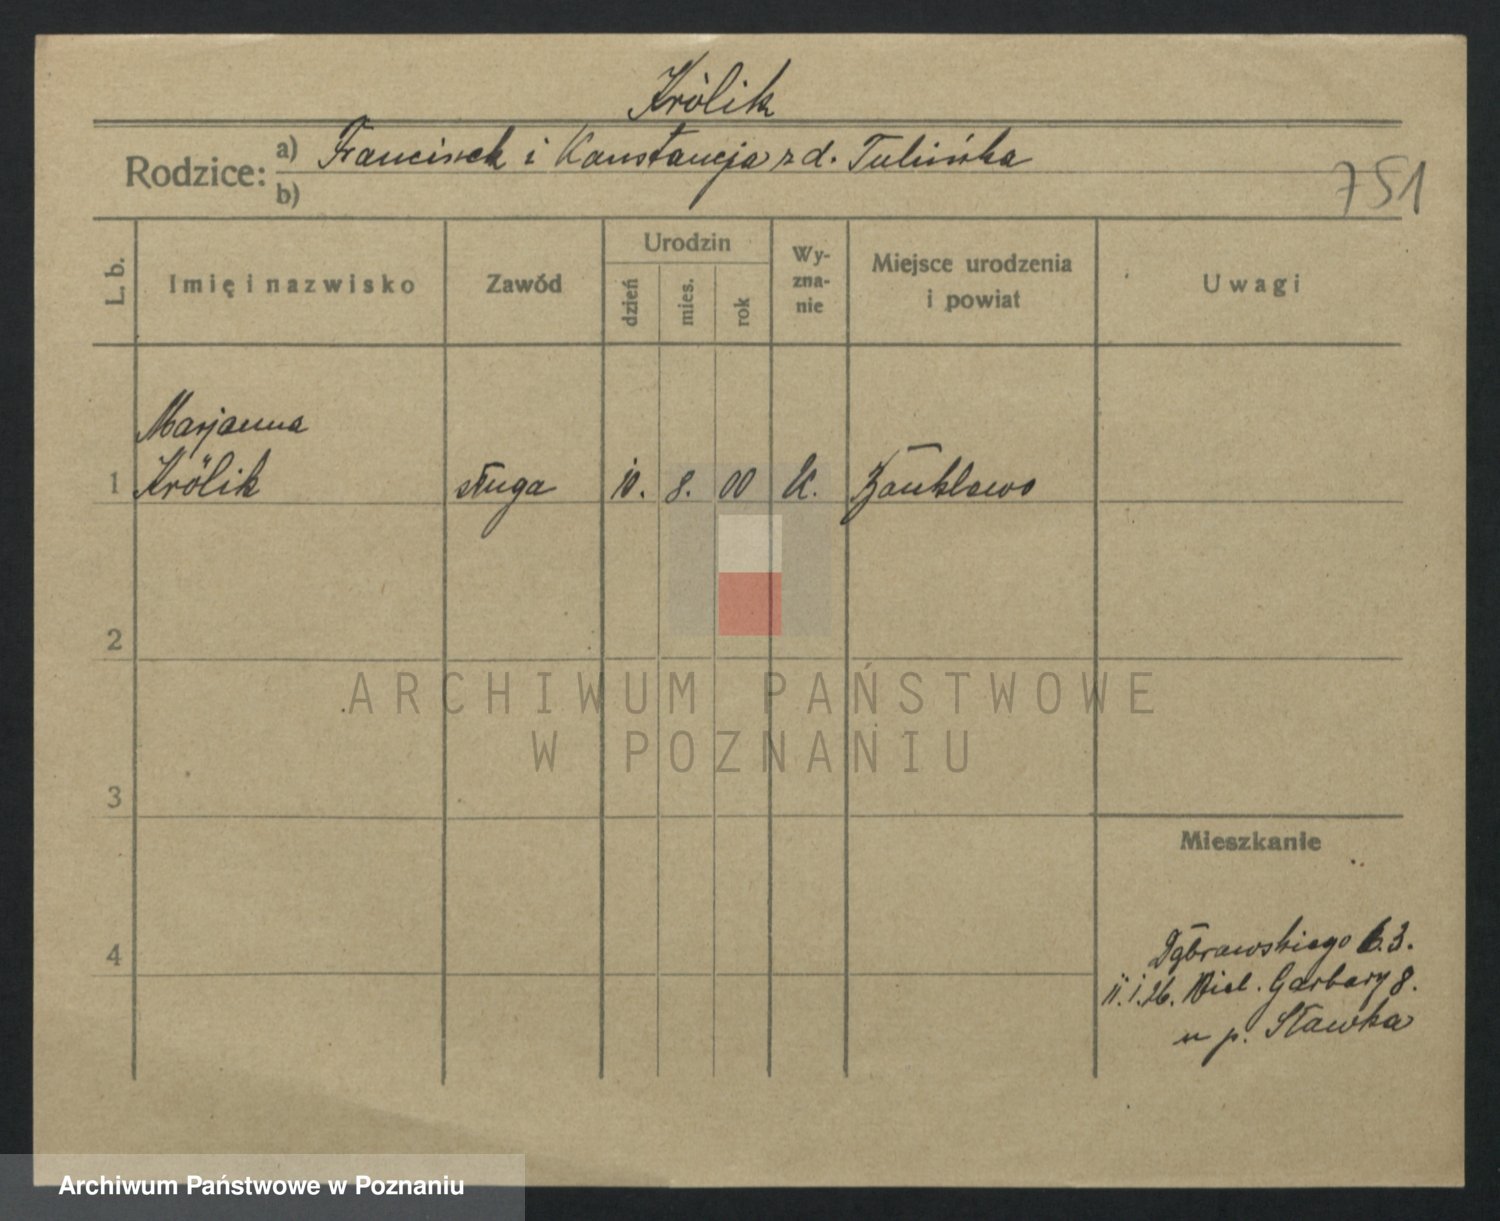 Królik
Rodzice: a) Franciszek i Konstancja z d. Tulińska
b)
751
L. b.
Imię i nazwisko
Zawód
Urodzin
dzień
mies.
rok
Wy-
zna-
nie
Miejsce urodzenia
i powiat
Uwagi
Marjanna
1 Królik sługa 10. 8. 00 k.
2
3
4
Mieszkanie
Dąbrowskiego 3.
11.1.26. Garbary 8.
u p. Sławka
ARCHIWUM PAŃSTWOWE
W POZNANIU
Archiwum Państwowe w Poznaniu